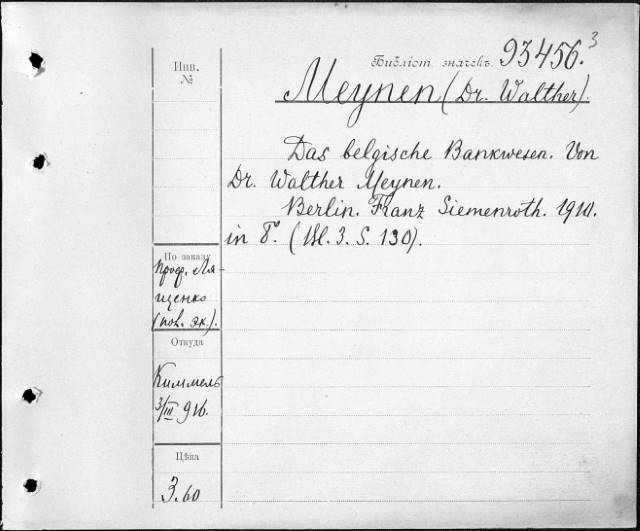 Библіот. значекъ. 93456.3
Инв.
№
Meynen (Dr. Walther).
Das belgische Bankwesen. Von
Dr. Walther Meynen.
Berlin. Franz Siemenroth. 1910.
in 8º. ( 3. S. 130).
По заказу
Проф. Ля-
щенко
(пов. эк.).
Откуда
Киммель
3/III 916.
Цѣна
3.60